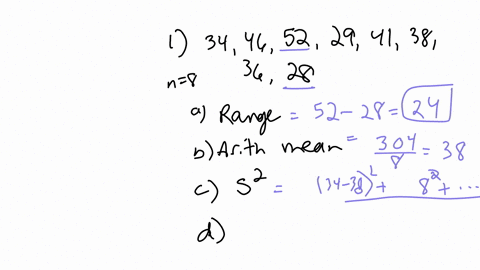 1) 34, 46, 52, 29, 41, 38,
n=8 36, 28
a) Range = 52-28= 24
b) Arith mean = 304/8 = 38
c) S² = (34-38)² + 8² + ...
d)